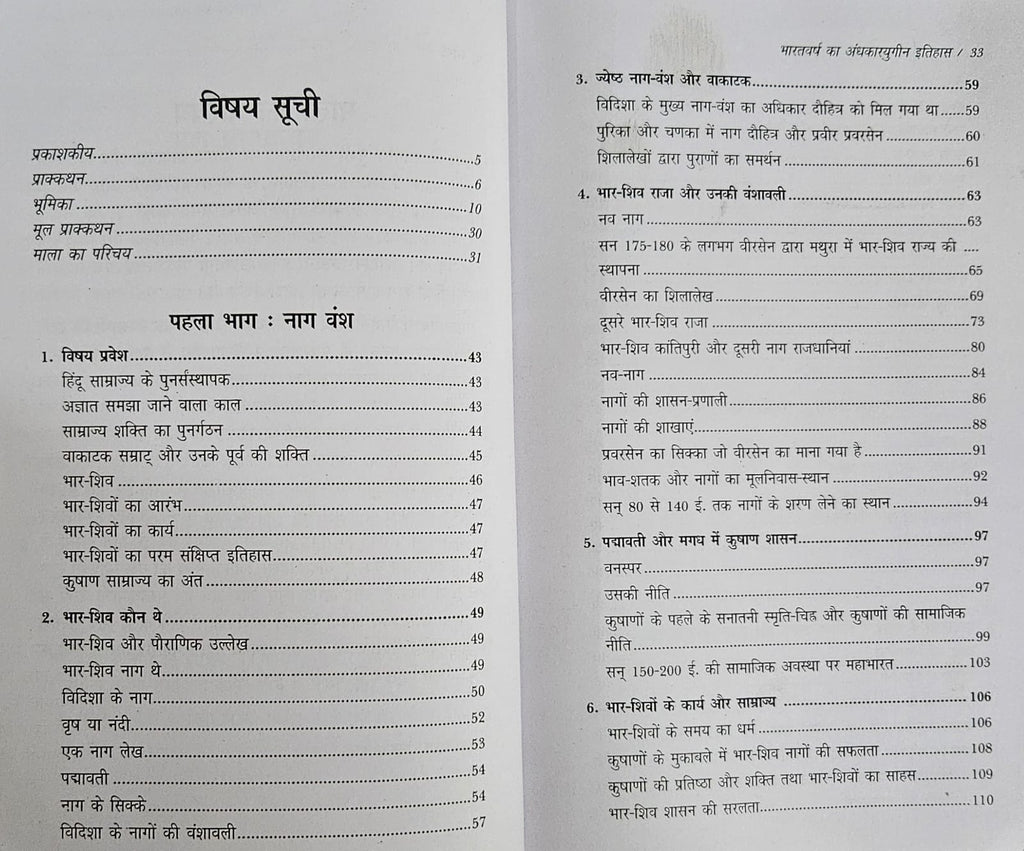 विषय सूची
प्रकाशकीय..........5
प्राक्कथन..........6
भूमिका..........10
मूल प्राक्कथन..........30
माला का परिचय..........31
पहला भाग : नाग वंश
1. विषय प्रवेश..........43
हिंदू साम्राज्य के पुनर्संस्थापक..........43
अज्ञात समझा जाने वाला काल..........43
साम्राज्य शक्ति का पुनर्गठन..........44
वाकाटक सम्राट् और उनके पूर्व की शक्ति..........45
भार-शिव..........46
भार-शिवों का आरंभ..........47
भार-शिवों का कार्य..........47
भार-शिवों का परम संक्षिप्त इतिहास..........47
कुषाण साम्राज्य का अंत..........48
2. भार-शिव कौन थे..........49
भार-शिव और पौराणिक उल्लेख..........49
भार-शिव नाग थे..........49
विदिशा के नाग..........50
वृष या नंदी..........52
एक नाग लेख..........53
पद्मावती..........54
नाग के सिक्के..........54
विदिशा के नागों की वंशावली..........57
भारतवर्ष का अंधकारयुगीन इतिहास / 33
3. ज्येष्ठ नाग-वंश और वाकाटक..........59
विदिशा के मुख्य नाग-वंश का अधिकार दौहित्र को मिल गया था......59
पुरिका और चणका में नाग दौहित्र और प्रवीर प्रवरसेन..........60
शिलालेखों द्वारा पुराणों का समर्थन..........61
4. भार-शिव राजा और उनकी वंशावली..........63
नव नाग..........63
सन 175-180 के लगभग वीरसेन द्वारा मथुरा में भार-शिव राज्य की ....
स्थापना..........65
वीरसेन का शिलालेख..........69
दूसरे भार-शिव राजा..........73
भार-शिव कांतिपुरी और दूसरी नाग राजधानियां..........80
नव-नाग..........84
नागों की शासन-प्रणाली..........86
नागों की शाखाएं..........88
प्रवरसेन का सिक्का जो वीरसेन का माना गया है..........91
भाव-शतक और नागों का मूलनिवास-स्थान..........92
सन् 80 से 140 ई. तक नागों के शरण लेने का स्थान..........94
5. पद्मावती और मगध में कुषाण शासन..........97
वनस्पर..........97
उसकी नीति..........97
कुषाणों के पहले के सनातनी स्मृति-चिह्न और कुषाणों की सामाजिक
नीति..........99
सन् 150-200 ई. की सामाजिक अवस्था पर महाभारत..........103
6. भार-शिवों के कार्य और साम्राज्य..........106
भार-शिवों के समय का धर्म..........106
कुषाणों के मुकाबले में भार-शिव नागों की सफलता..........108
कुषाणों की प्रतिष्ठा और शक्ति तथा भार-शिवों का साहस..........109
भार-शिव शासन की सरलता..........110